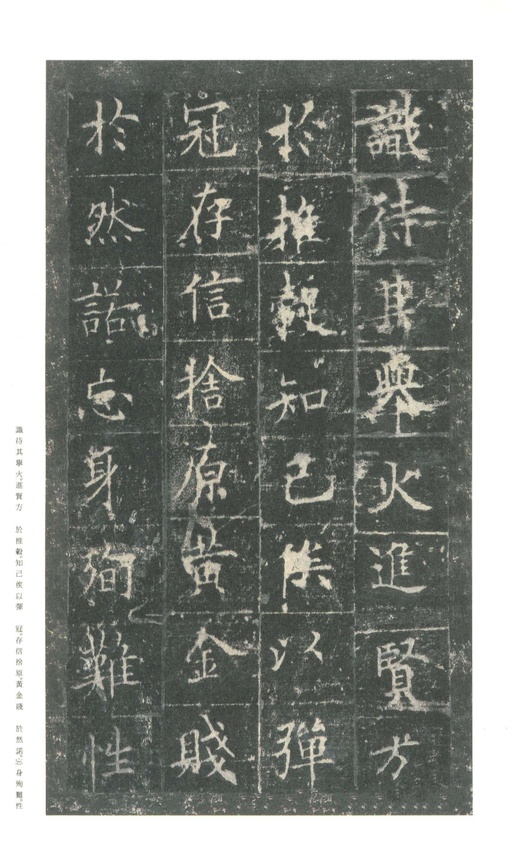 識待其舉火進賢方
於推轂知己俟以彈
冠存信捨原黃金賤
於然諾忘身殉難性
識待其舉火。進賢方　於推轂。知己俟以彈　冠。存信捨原。黃金賤　於然諾。忘身殉難。性